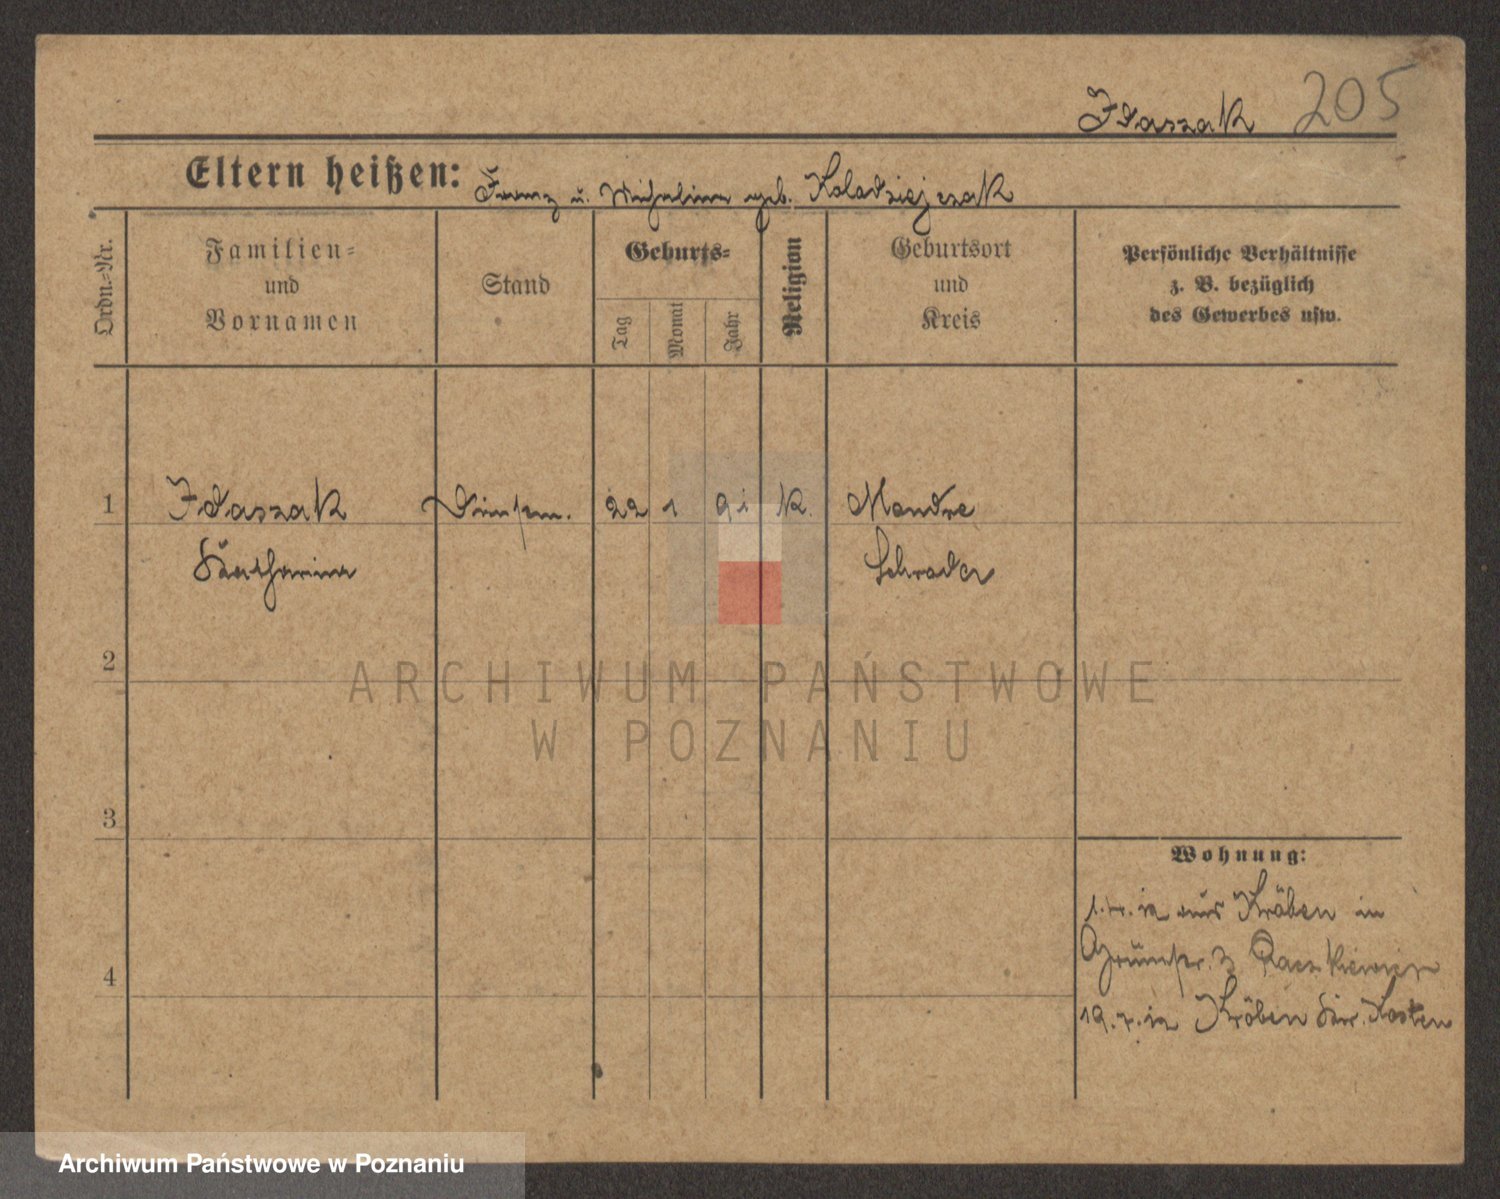 Idaszak 205
Eltern heißen: Franz u. Michalina geb. Kolodziejczak
Ordn.-Nr.
Familien-
und
Vornamen
Stand
Geburts-
Tag
Monat
Jahr
Religion
Geburtsort
und
Kreis
Persönliche Verhältnisse
z. B. bezüglich
des Gewerbes usw.
1 Idaszak 22 1 91 K. Mondre
Katharina Schroda
2
ARCHIWUM PAŃSTWOWE
W POZNANIU
3
Wohnung:
aus Kröben in
4
Grünstr. 3
19.7.12 Kröben Kosten
Archiwum Państwowe w Poznaniu